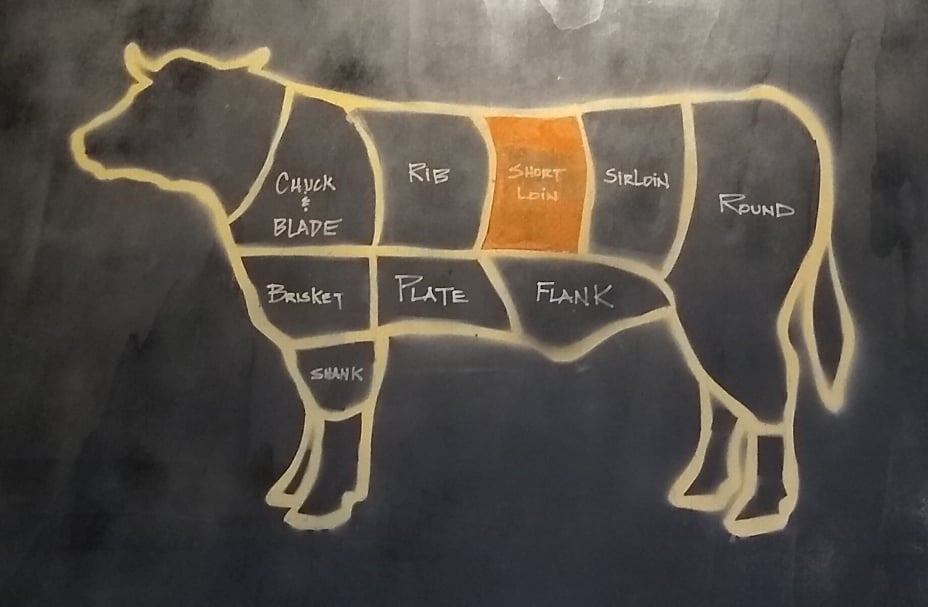 CHUCK
&
BLADE
RIB
SHORT
LOIN
SIRLOIN
ROUND
BRISKET
PLATE
FLANK
SHANK